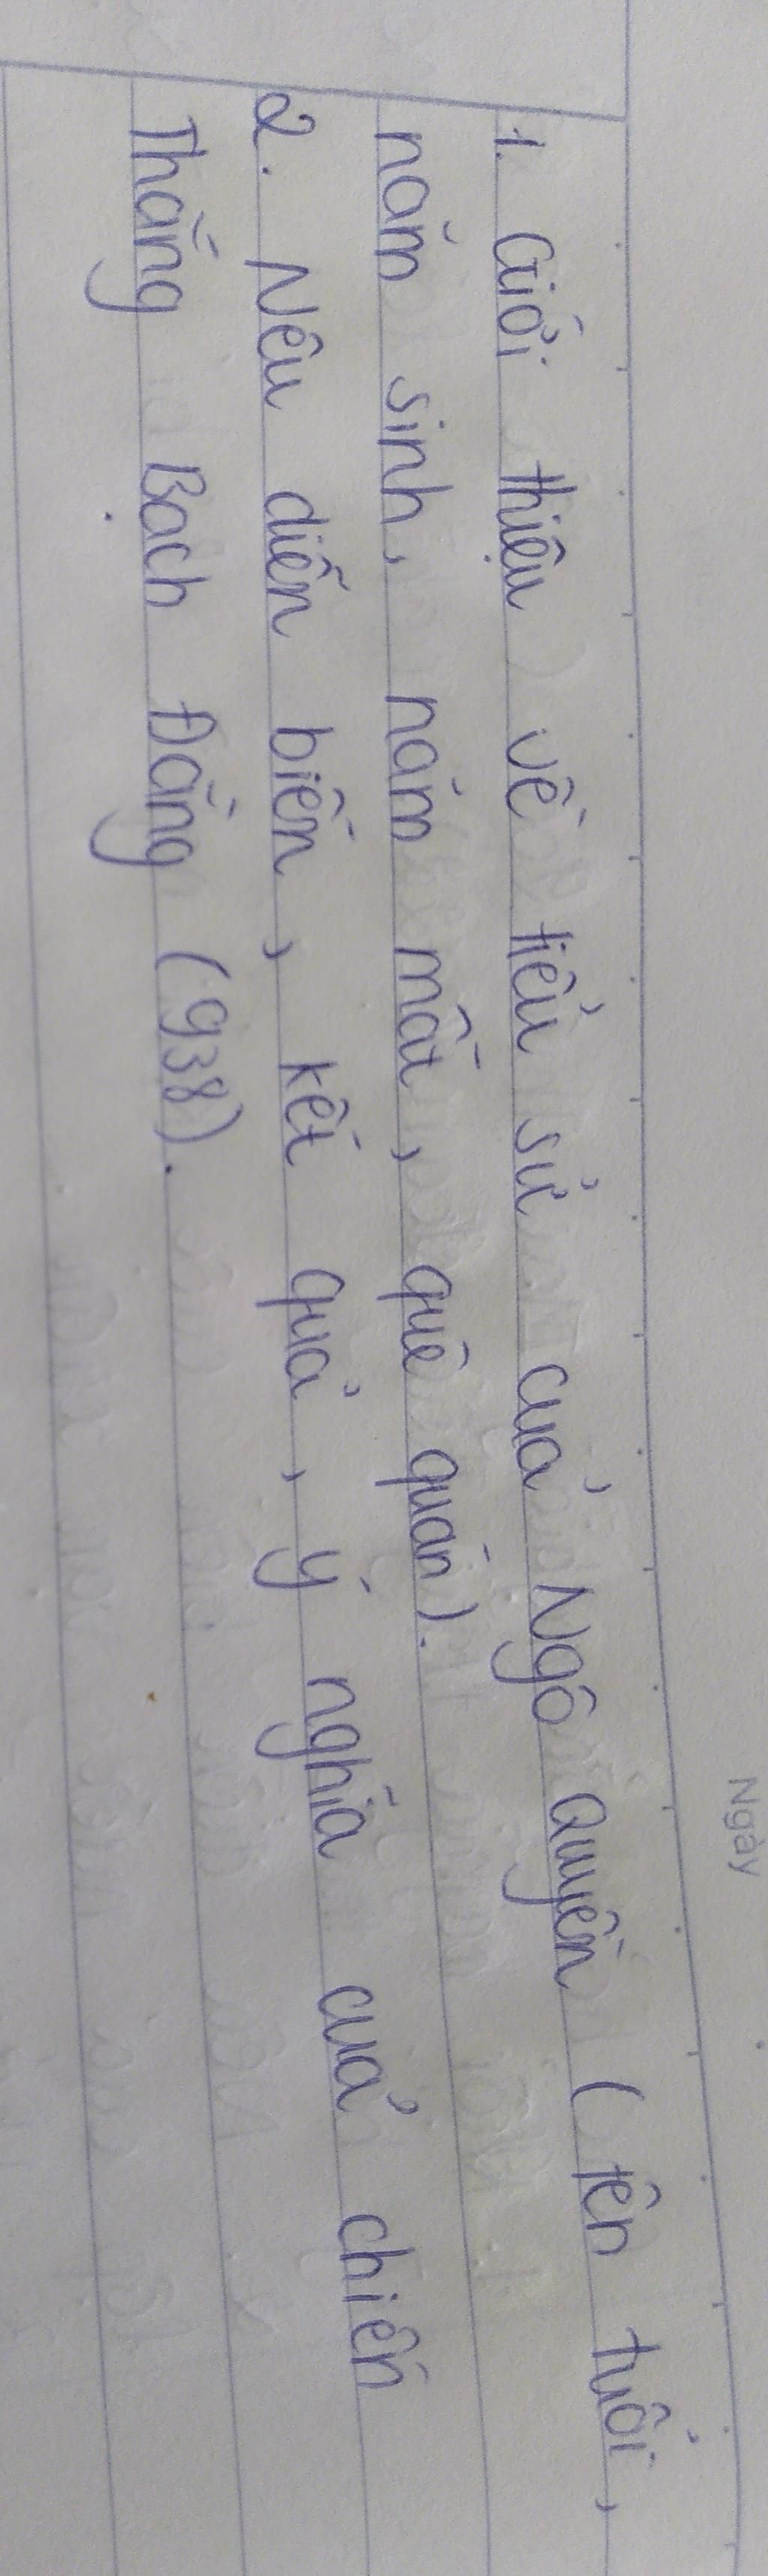 Ngày
1. Giới thiệu về tiểu sử của Ngô Quyền ( tên tuổi,
năm sinh, năm mất, quê quán).
2. Nêu diễn biến, kết quả, ý nghĩa của chiến
Thắng Bạch Đằng (938).